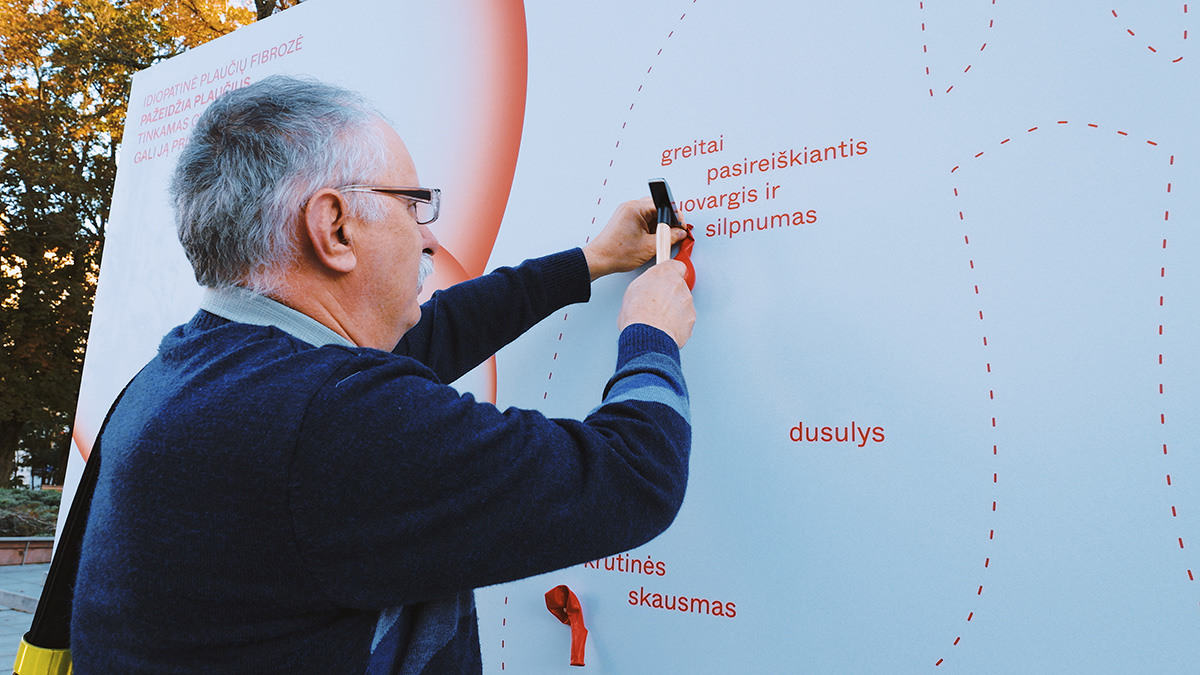 IDIOPATINĖ PLAUČIŲ FIBROZĖ
PAŽEIDŽIA PLAUČIUS
TINKAMAS
GALI JĄ
greitai
pasireiškiantis
ir
silpnumas
dusulys
krūtinės
skausmas